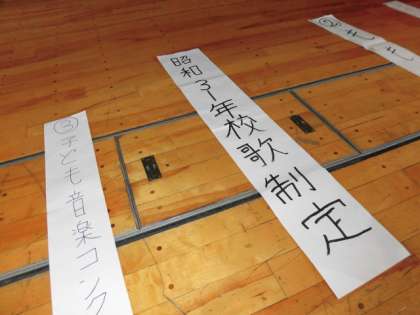 昭和31年校歌制定
③子ども音楽コンク
②